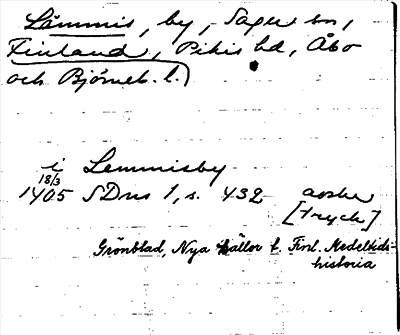 Lämmis, by, Sagu sn,
Finland, Pikis hd, Åbo
och Björneb. l.
i Lemmisby
18/3
1405 SDns 1, s. 432 avskr
[tryck]
Grönblad, Nya källor t. Finl. Medeltids-
historia